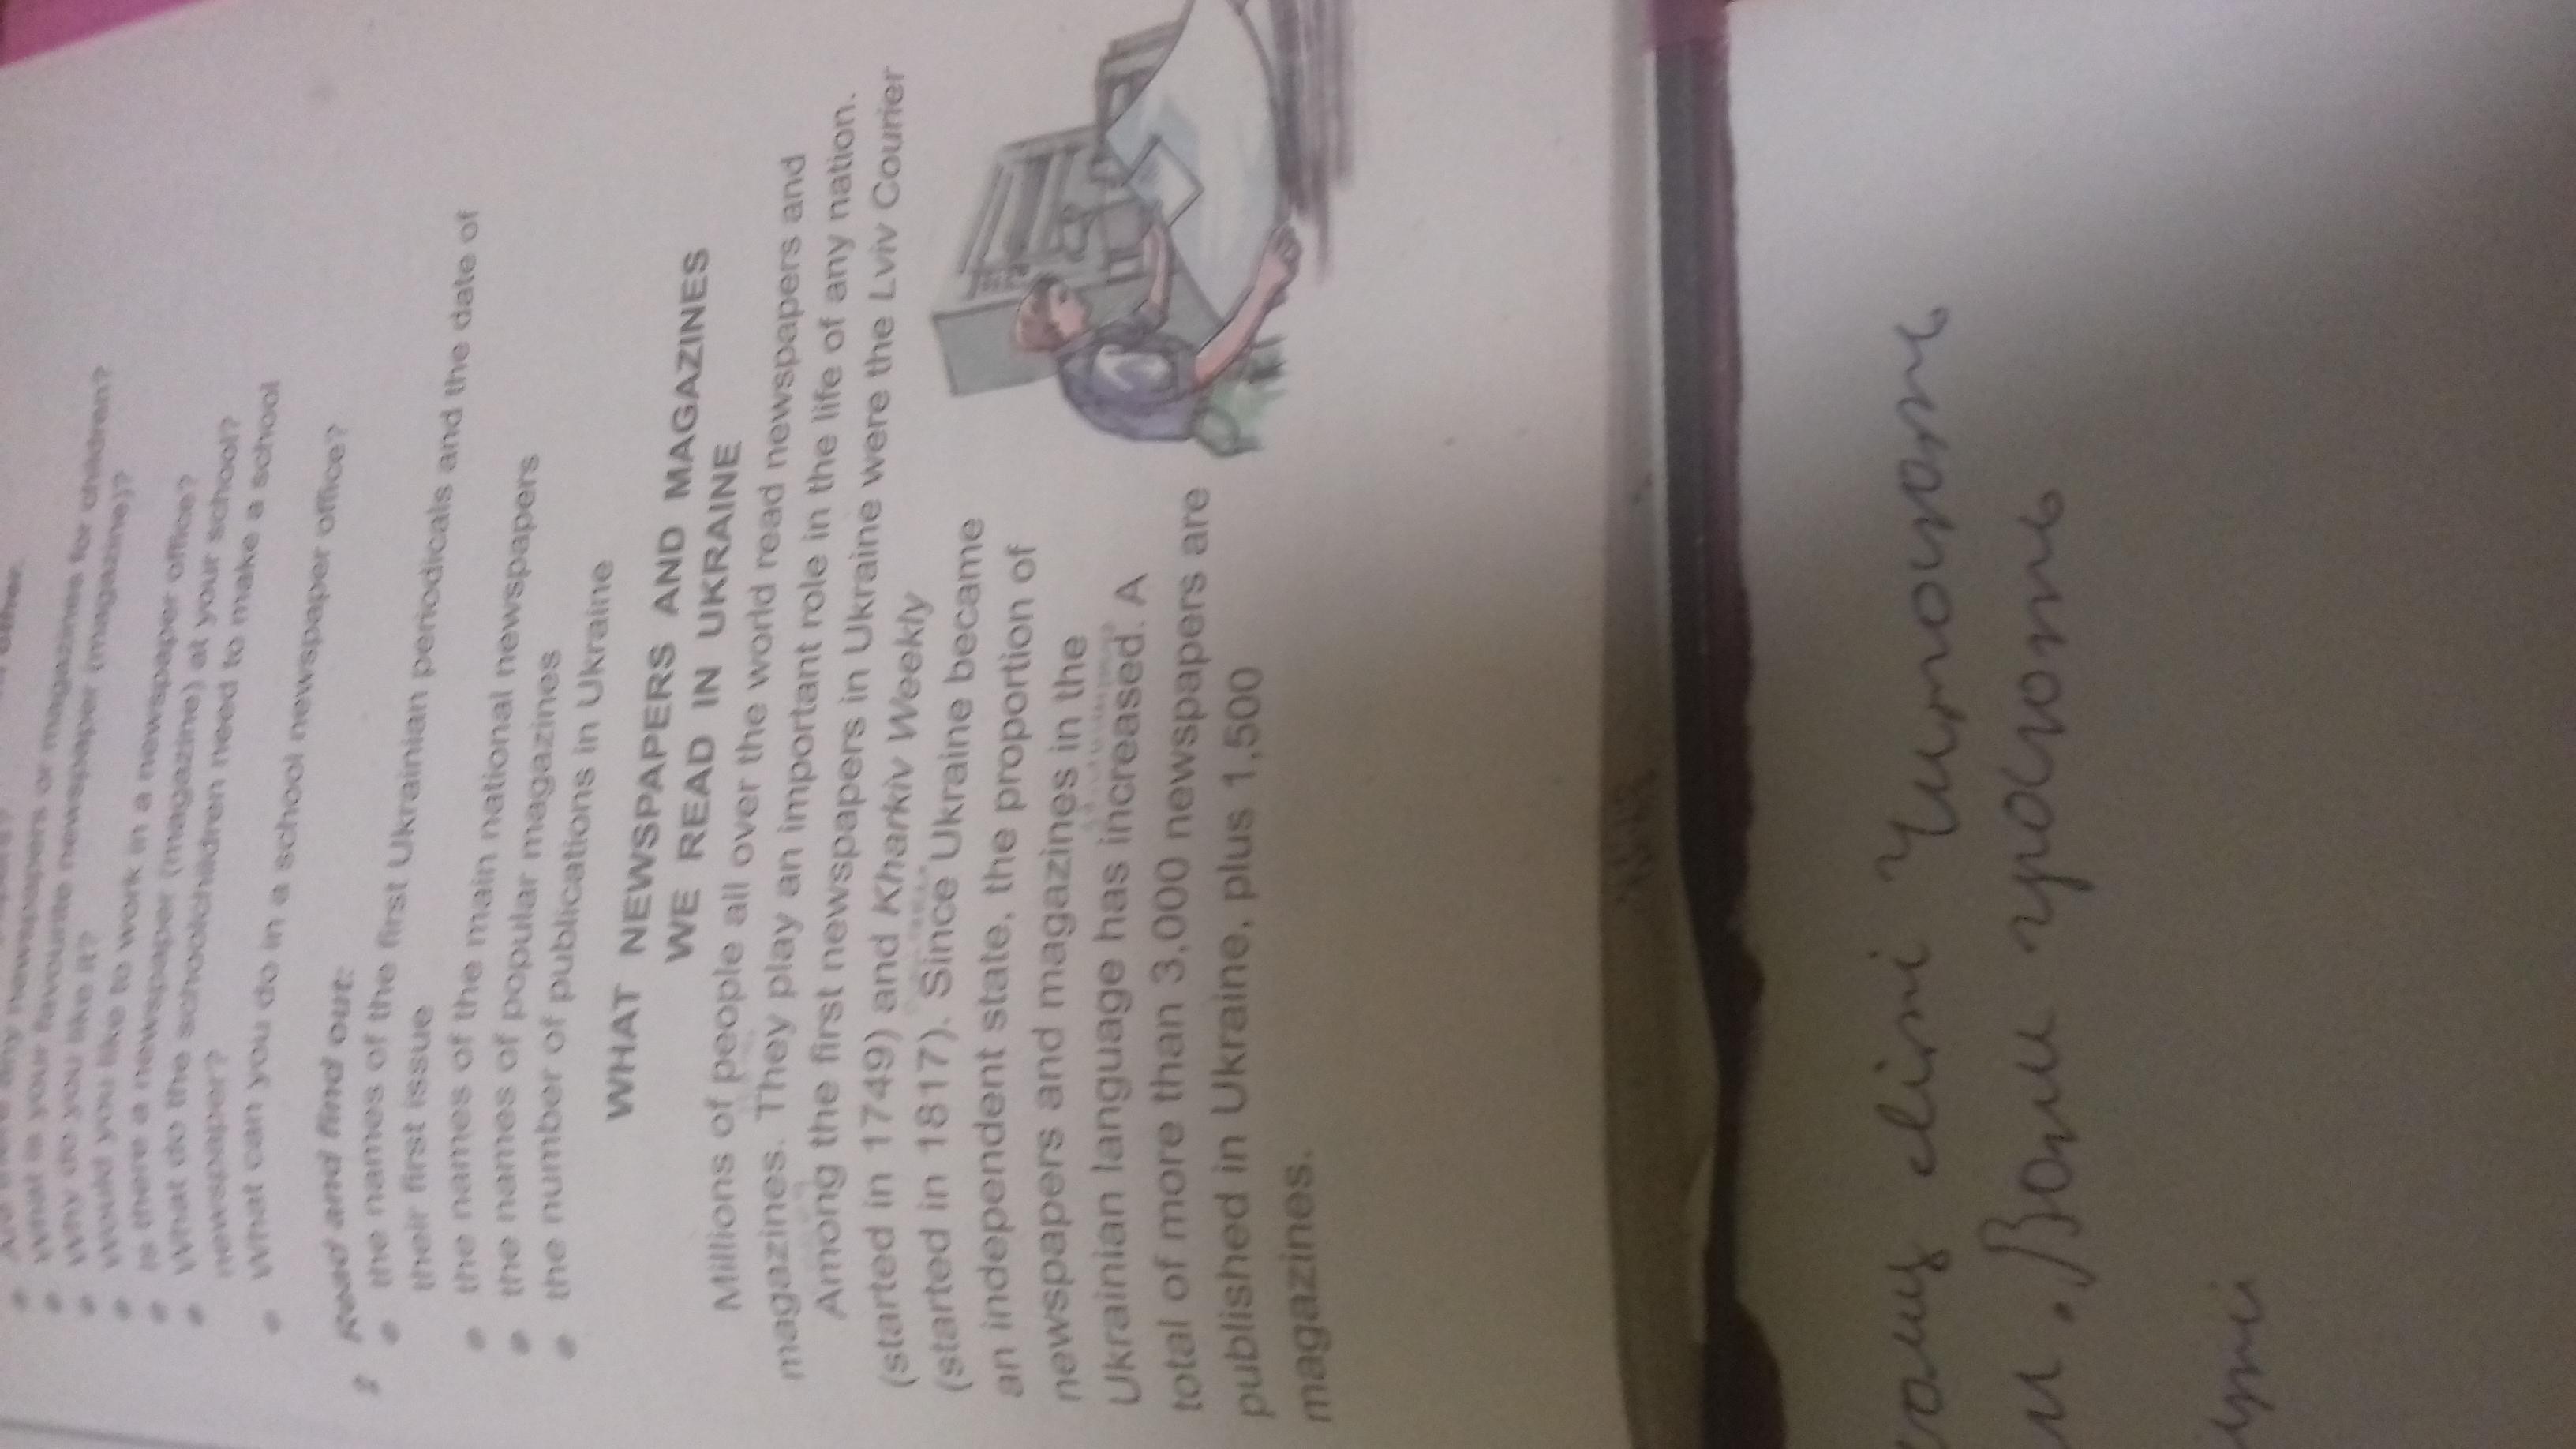 any newspapers or magazines for children?
What is your favourite newspaper (magazine)?
Why do you like it?
Would you like to work in a newspaper office?
Is there a newspaper (magazine) at your school?
What do the schoolchildren need to make a school
newspaper?
What can you do in a school newspaper office?
2 Read and find out:
the names of the first Ukrainian periodicals and the date of
their first issue
the names of the main national newspapers
the names of popular magazines
the number of publications in Ukraine
WHAT NEWSPAPERS AND MAGAZINES
WE READ IN UKRAINE
Millions of people all over the world read newspapers and
magazines. They play an important role in the life of any nation.
Among the first newspapers in Ukraine were the Lviv Courier
(started in 1749) and Kharkiv Weekly
(started in 1817). Since Ukraine became
an independent state, the proportion of
newspapers and magazines in the
Ukrainian language has increased. A
total of more than 3,000 newspapers are
published in Ukraine, plus 1,500
magazines.
світі читають
и. Вони грають